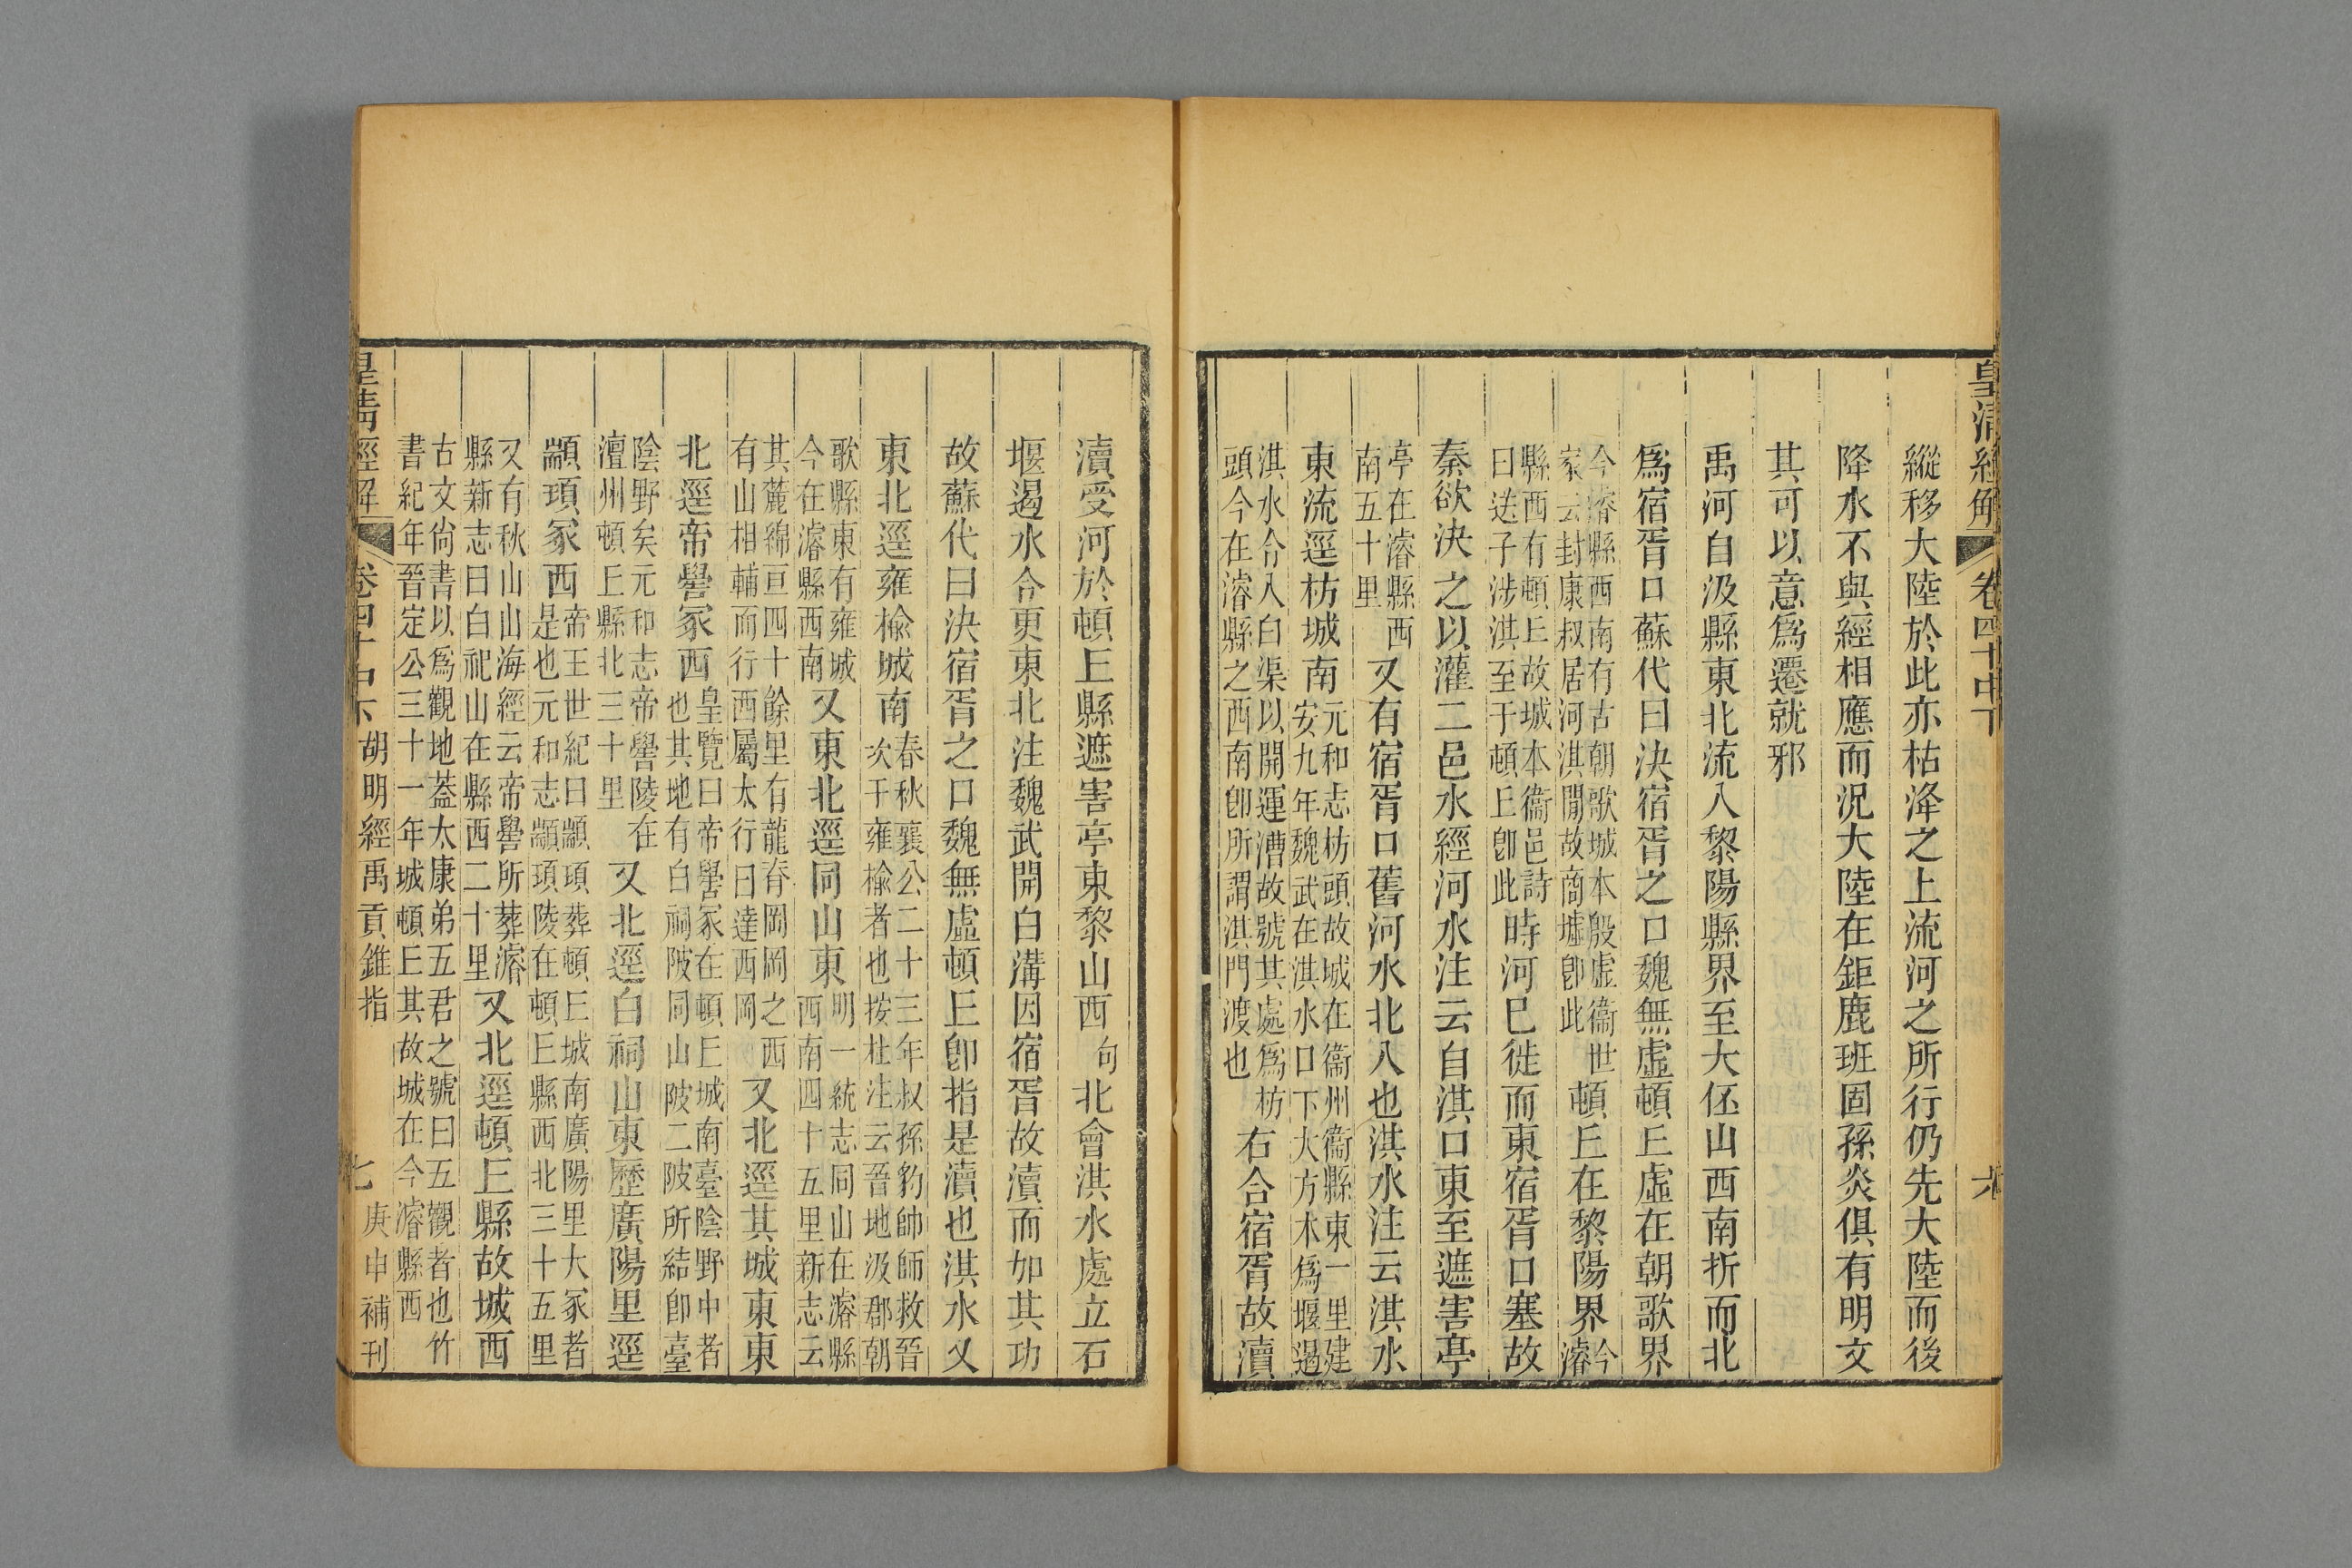 皇清經解 卷四十中下 六
縱移大陸於此亦枯洚之上流河之所行仍先大陸而後
降水不與經相應而況大陸在鉅鹿班固孫炎俱有明文
其可以意爲遷就邪
禹河自汲縣東北流入黎陽縣界至大伾山西南折而北
爲宿胥口蘇代曰決宿胥之口魏無虛頓丘虛在朝歌界
今濬縣西南有古朝歌城本殷虛衞世家云封康叔居河淇閒故商墟卽此頓丘在黎陽界今濬
縣西有頓丘故城本衞邑詩曰送子涉淇至于頓丘卽此時河已徙而東宿胥口塞故
秦欲決之以灌二邑水經河水注云自淇口東至遮害亭
亭在濬縣西南五十里又有宿胥口舊河水北入也淇水注云淇水
東流逕枋城南元和志枋頭故城在衞州衞縣東一里建安九年魏武在淇水口下大方木爲堰遏
淇水令入白渠以開運漕故號其處爲枋頭今在濬縣之西南卽所謂淇門渡也右合宿胥故瀆
瀆受河於頓丘縣遮害亭東黎山西句北會淇水處立石
堰遏水令更東北注魏武開白溝因宿胥故瀆而加其功
故蘇代曰決宿胥之口魏無虛頓丘卽指是瀆也淇水又
東北逕雍榆城南春秋襄公二十三年叔孫豹帥師救晉次于雍榆者也按杜注云晉地汲郡朝
歌縣東有雍城今在濬縣西南又東北逕同山東明一統志同山在濬縣西南四十五里新志云
其麓綿亘四十餘里有龍脊岡岡之西有山相輔而行西屬太行曰達西岡又北逕其城東東
北逕帝嚳冢西皇覽曰帝嚳冢在頓丘城南臺陰野中者也其地有白祠陂同山陂二陂所結卽臺
陰野矣元和志帝嚳陵在澶州頓丘縣北三十里又北逕白祠山東歷廣陽里逕
顓頊冢西帝王世紀曰顓頊葬頓丘城南廣陽里大冢者是也元和志顓頊陵在頓丘縣西北三十五里
又有秋山山海經云帝嚳所葬濬縣新志曰白祀山在縣西二十里又北逕頓丘縣故城西
古文尙書以爲觀地蓋太康弟五君之號曰五觀者也竹書紀年晉定公三十一年城頓丘其故城在今濬縣西
皇清經解 卷四十中下 胡明經禹貢錐指 七 庚申補刊